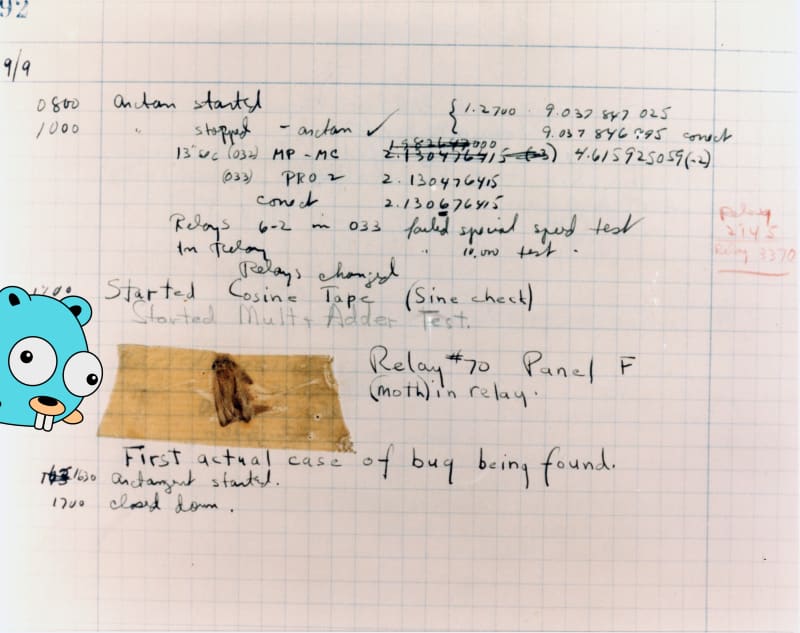 92
9/9
0800 antan started { 1.2700 9.037 847 025
1000 " stopped - antan ✓ 9.037 846 995 conect
13"uc (032) MP - MC 2.130476415 (-3) 4.615925059(-2)
(033) PRO 2 2.130476415
conect 2.130676415
Relays 6-2 in 033 failed special speed test
In Relay " 10,000 test .
Relays changed
Started Cosine Tape (Sine check)
Started Mult+ Adder Test.
Relay #70 Panel F
(moth) in relay.
First actual case of bug being found.
1630 antangent started.
1700 closed down.
Relay
2145
Relay 3370